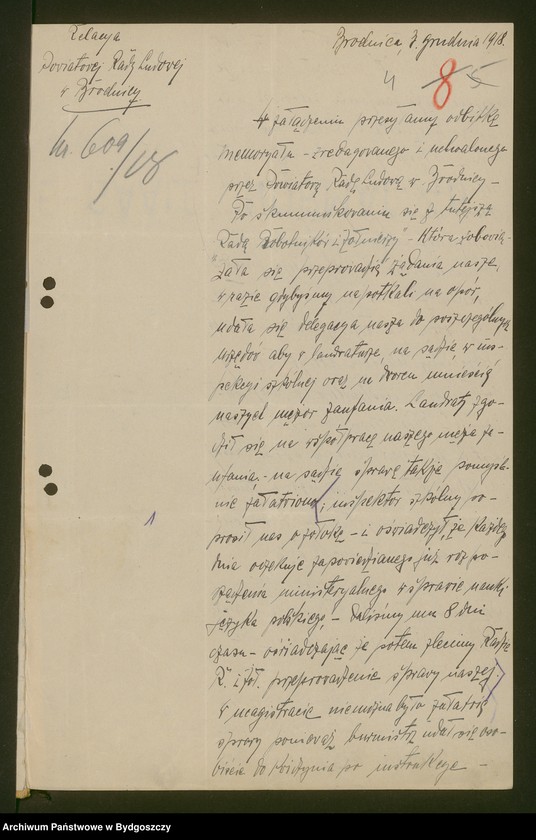 Relacya
Powiatowej Rady Ludowej
w Brodnicy
Brodnica, 7. grudnia 1918.
4 8 5
Nr. 609/18
W załączeniu przesyłamy odbitkę
memoryału - zredagowanego i uchwalonego
przez Powiatową Radę Ludową w Brodnicy -
Po skomunikowaniu się z tutejszą
Radą "Robotników i Żołnierzy" - która zobowią-
zała się przeprowadzić żądania nasze,
w razie gdybyśmy napotkali na opór,
udała się delegacya nasza do poszczególnych
urzędów aby w landraturze, na sądzie, w ins-
pekcyi szkolnej oraz na dworcu umieścić
naszych mężów zaufania. Landrat zgo-
dził się na współpracę naszego męża za-
ufania, - na sądzie sprawę także pomyśl-
nie załatwiono; inspektor szkolny po-
prosił nas o zwłokę - i oświadczył, że każdego
dnia oczekuje zapowiedzianego już rozpo-
rządzenia ministeryalnego w sprawie nauki
języka polskiego, - daliśmy mu 8 dni
czasu - oświadczając że potem zlecimy Radzie
R. i żoł. przeprowadzenie sprawy naszej.
W magistracie niemożna było załatwić
sprawy ponieważ burmistrz udał się oso-
biście do Kwidzynia po instrukcye -
1
Archiwum Państwowe w Bydgoszczy